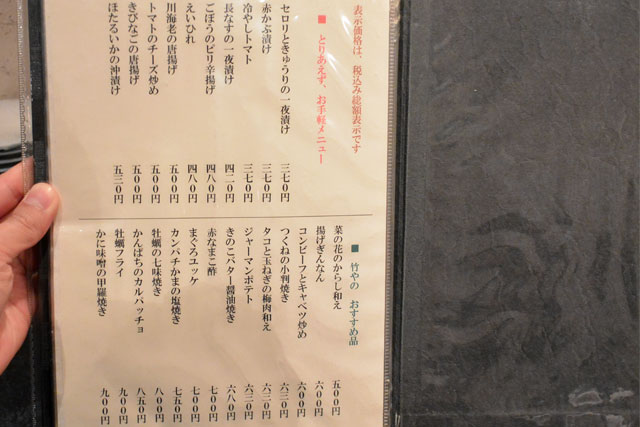 表示価格は、税込み総額表示です
■ とりあえず、お手軽メニュー
セロリときゅうりの一夜漬け 三七〇円
赤かぶ漬け 三七〇円
冷やしトマト 三七〇円
長なすの一夜漬け 四二〇円
ごぼうのピリ辛揚げ 四八〇円
えいひれ 四八〇円
川海老の唐揚げ 五〇〇円
トマトのチーズ炒め 五〇〇円
きびなごの唐揚げ 五〇〇円
ほたるいかの沖漬け 五三〇円
■ 竹やの おすすめ品
菜の花のからし和え 五〇〇円
揚げぎんなん 六〇〇円
コンビーフとキャベツ炒め 六〇〇円
つくねの小判焼き 六三〇円
タコと玉ねぎの梅肉和え 六三〇円
ジャーマンポテト 六三〇円
きのこバター醤油焼き 六八〇円
赤なまこ酢 七〇〇円
まぐろユッケ 七〇〇円
カンパチかまの塩焼き 七五〇円
牡蠣の七味焼き 八〇〇円
かんぱちのカルパッチョ 八五〇円
牡蠣フライ 九〇〇円
かに味噌の甲羅焼き 九〇〇円